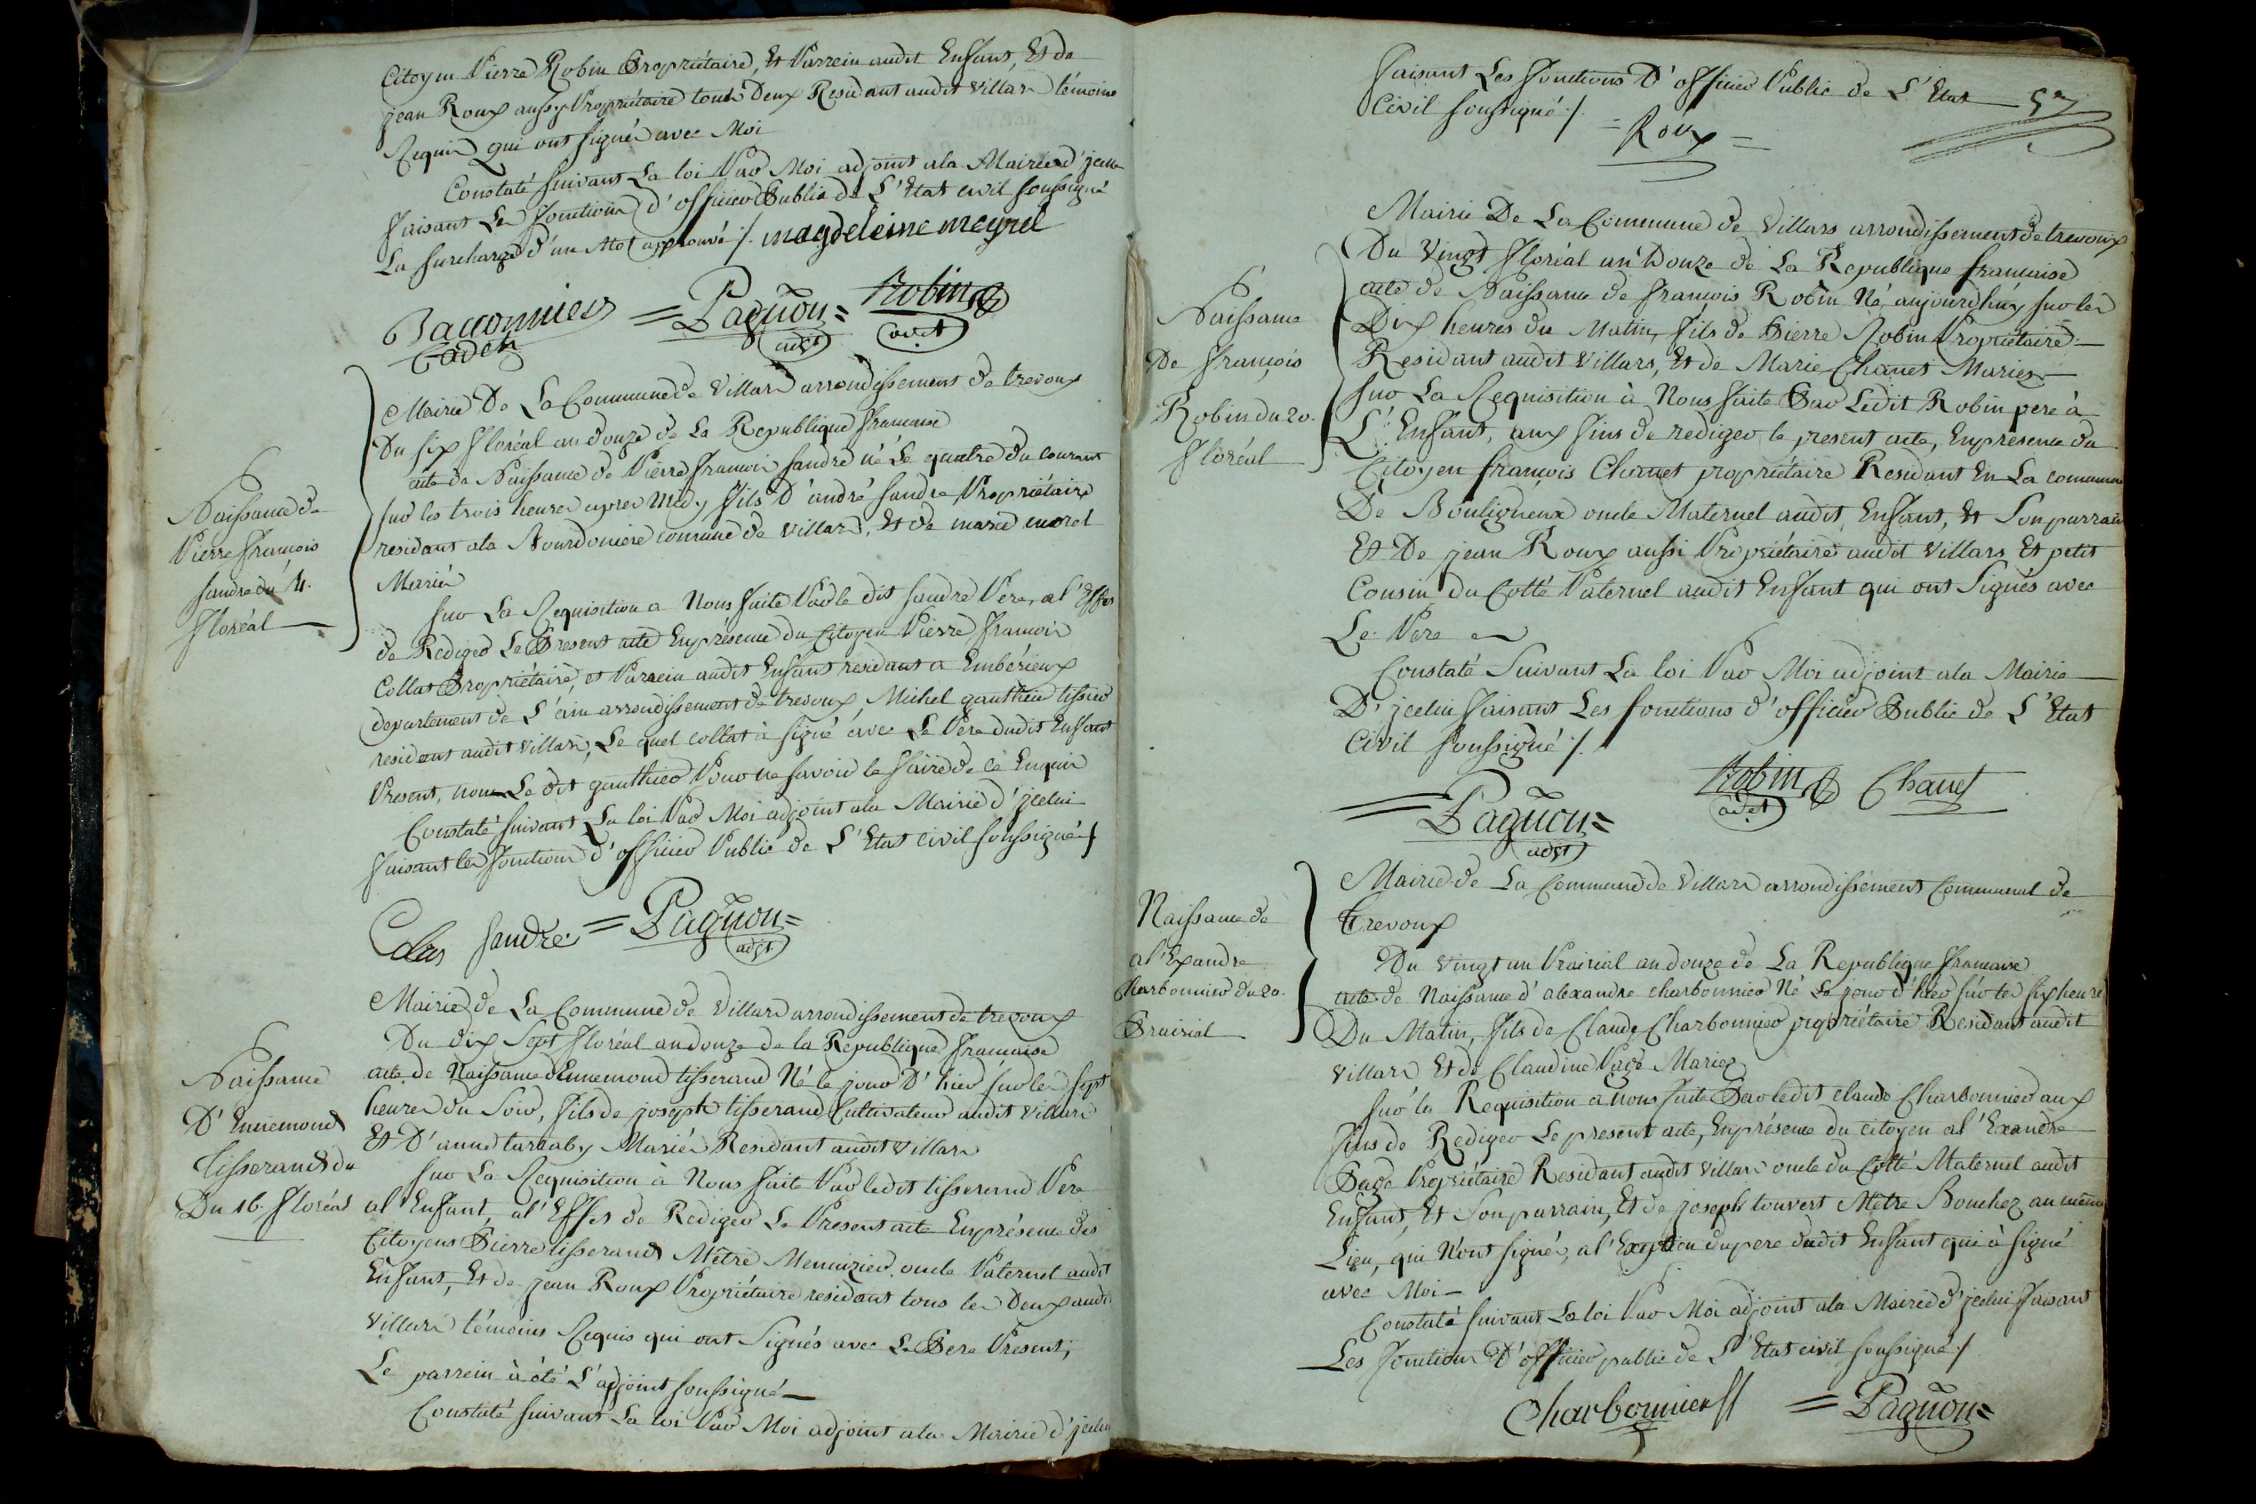 Citoyen Pierre Robin Propriétaire, Et Parrein audit Enfant, Et de
jean Roux aussy Propriétaire tous Deux Residant audit villars témoins
Requis qui ont signés avec Moi
Constaté suivant La loi Par Moi adjoint ala Mairie d'jcelle
faisant Les fonctions d'officier Public de L'Etat civil soussigné
La surcharge d'un Mot approuvé ./. magdeleine meyrel
Bacconnier = Pagnon = Robin
Cadet adjt adjt
Naissance de
Pierre françois
sandre du 4.
floréal
Mairie De La Commune de Villars arrondissement de trevoux
Du six floréal an douze de La Republique francaise
acte de Naissance de Pierre francois sandre né Le quatre du courant
sur les trois heures apres midy fils D'andré sandre Propriétaire
residant ala Nourdoniere comune de villars, Et de marie morel
Mariés
sur La Requisition a Nous faite Par le dit sandre Pere, a l'effet
de Rediger Le Present acte En présence du Citoyen Pierre francois
Collat Propriétaire, et Parrein audit Enfant residant a Embérieux
departement de L'ain arrondissement de trevoux, Michel gauthier tissier
residant audit villars, Le quel collat à signé avec Le Pere dudit Enfant
Present, non Le dit gauthier Pour ne savoir le faire de ce Enquis
Constaté suivant La loi Par Moi adjoint ala Mairie d'jcelui
faisant les fonctions d'officier Public de L'Etat civil soussigné ./
sandre = Pagnon =
adjt
Naissance
D'Ennemond
tisserand du
Du 16. floréal
Mairie de La Commune de Villars arrondissement de trevoux
Du dix Sept floréal an douze de la Republique francaise
acte de Naissance d'Ennemond tisserand Né le jour D'hier sur les sept
heures du Soir, fils de joseph tisserand Cultivateur audit villars
Et D'anne Mariés Residant audit villars
sur La Requisition à Nous faite Par ledit tisserand Pere
al'Enfant, al'Effet de Rediger Le Present acte En présence des
Citoyens Pierre tisserand Mêtre Menuizier oncle Paternel audit
Enfant, Et de jean Roux Propriétaire residant tous les Deux audit
villars témoins Requis qui ont Signés avec Le Pere Present;
Le parrein à été L'adjoint soussigné
Constaté suivant La loi Par Moi adjoint ala Mairie d'jcelui
faisant Les fonctions D'officier Public de L'Etat 57
Civil soussigné ./. = Roux =
Naissance
De françois
Robin du 20.
floréal
Mairie De La Commune de Villars arrondissement de trevoux
Du Vingt floréal an Douze de La Republique francaise
acte de Naissance de francois Robin Né aujourd'huy sur les
Dix heures du Matin, fils de Pierre Robin Propriétaire
Residant audit villars, Et de Marie Chanet Mariés
sur La Requisition à Nous faite Par Ledit Robin pere à
L'Enfant, aux fins de rediger le present acte, En presence du
Citoyen francois Chanet propriétaire Residant En La commune
De Bouligneux oncle Maternel audit Enfant, Et Son parrain
Et De jean Roux aussi Propriétaire audit Villars Et petit
Cousin du Cotté Paternel audit Enfant qui ont Signés avec
Le Pere
Constaté Suivant La loi Par Moi adjoint ala Mairie
D'jcelui faisant Les fonctions d'officier Public de L'Etat
Civil soussigné ./.
= Pagnon = Robin Chanet
adjt adjt
Naissance de
al'Exandre
Charbonnier du 20.
Prairial
Mairie de La Commune de Villars arrondissement Communal de
trevoux
Du vingt un Prairial an douze de La Republique francaise
acte de Naissance d'alexandre charbonnier Né Le jour d'hier sur les six heures
Du Matin, fils de Claude Charbonnier propriétaire Residant audit
villars Et de Claudine Page Mariés
sur la Requisition a nous faite Par ledit claude Charbonnier aux
fins de Rediger Le present acte, En présence du citoyen al'Exandre
Page Propriétaire Residant audit villars oncle du Cotté Maternel audit
Enfant, Et Son parrain, Et de joseph touvert Mêtre Boucher au même
Lieu, qui N'ont signés, al'Exeption du pere dudit Enfant qui à signé
avec Moi
Constaté suivant La loi Par Moi adjoint ala Mairie d'jcelui faisant
Les fonctions D'officier public de L'Etat civil soussigné ./
Charbonnier = Pagnon =